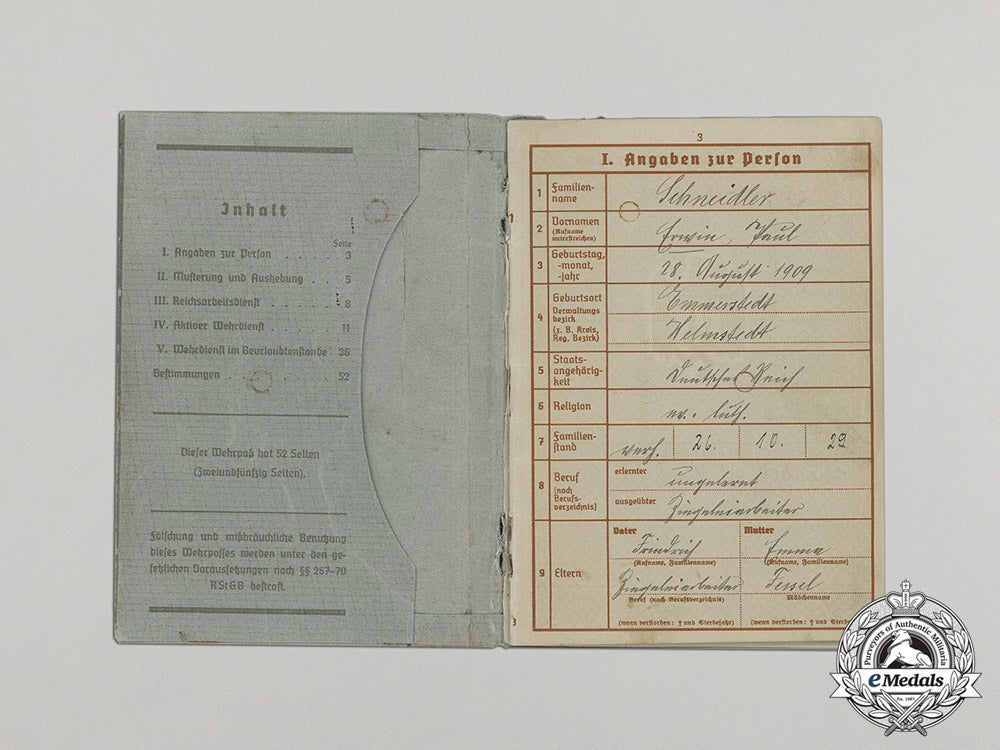 Inhalt
Seite
I. Angaben zur Person . . . . . 3
II. Musterung und Aushebung . . . 5
III. Reichsarbeitsdienst . . . . . . 8
IV. Aktiver Wehrdienst . . . . . . 11
V. Wehrdienst im Beurlaubtenstande 36
Bestimmungen . . . . . . . . 52
Dieser Wehrpaß hat 52 Seiten
(Zweiundfünfzig Seiten).
Fälschung und mißbräuchliche Benutzung
dieses Wehrpasses werden unter den ge-
setzlichen Voraussetzungen nach §§ 267–70
RStGB bestraft.
3
I. Angaben zur Person
1 Familien-
name
Schneidler
2 Vornamen
(Rufname
unterstreichen)
Erwin, Paul
3 Geburtstag,
-monat,
-jahr
28. August 1909
4 Geburtsort
Verwaltungs
bezirk
(z. B. Kreis,
Reg. Bezirk)
Emmerstedt
Helmstedt
5 Staats-
angehörig-
keit
Deutsches Reich
6 Religion
ev. luth.
7 Familien-
stand
verh. 26. 10. 29
8 Beruf
(nach
Berufs-
verzeichnis)
erlernter
ungelernt
ausgeübter
Ziegeleiarbeiter
9 Eltern
Vater
Friedrich
(Rufname, Familienname)
Ziegeleiarbeiter
Beruf (nach Berufsverzeichnis)
(wenn verstorben: † und Sterbejahr)
Mutter
Emma
(Rufname, Familienname)
Tessel
Mädchenname
(wenn verstorben: † und Sterbe
Purveyors of Authentic Militaria
eMedals
Est. 1985